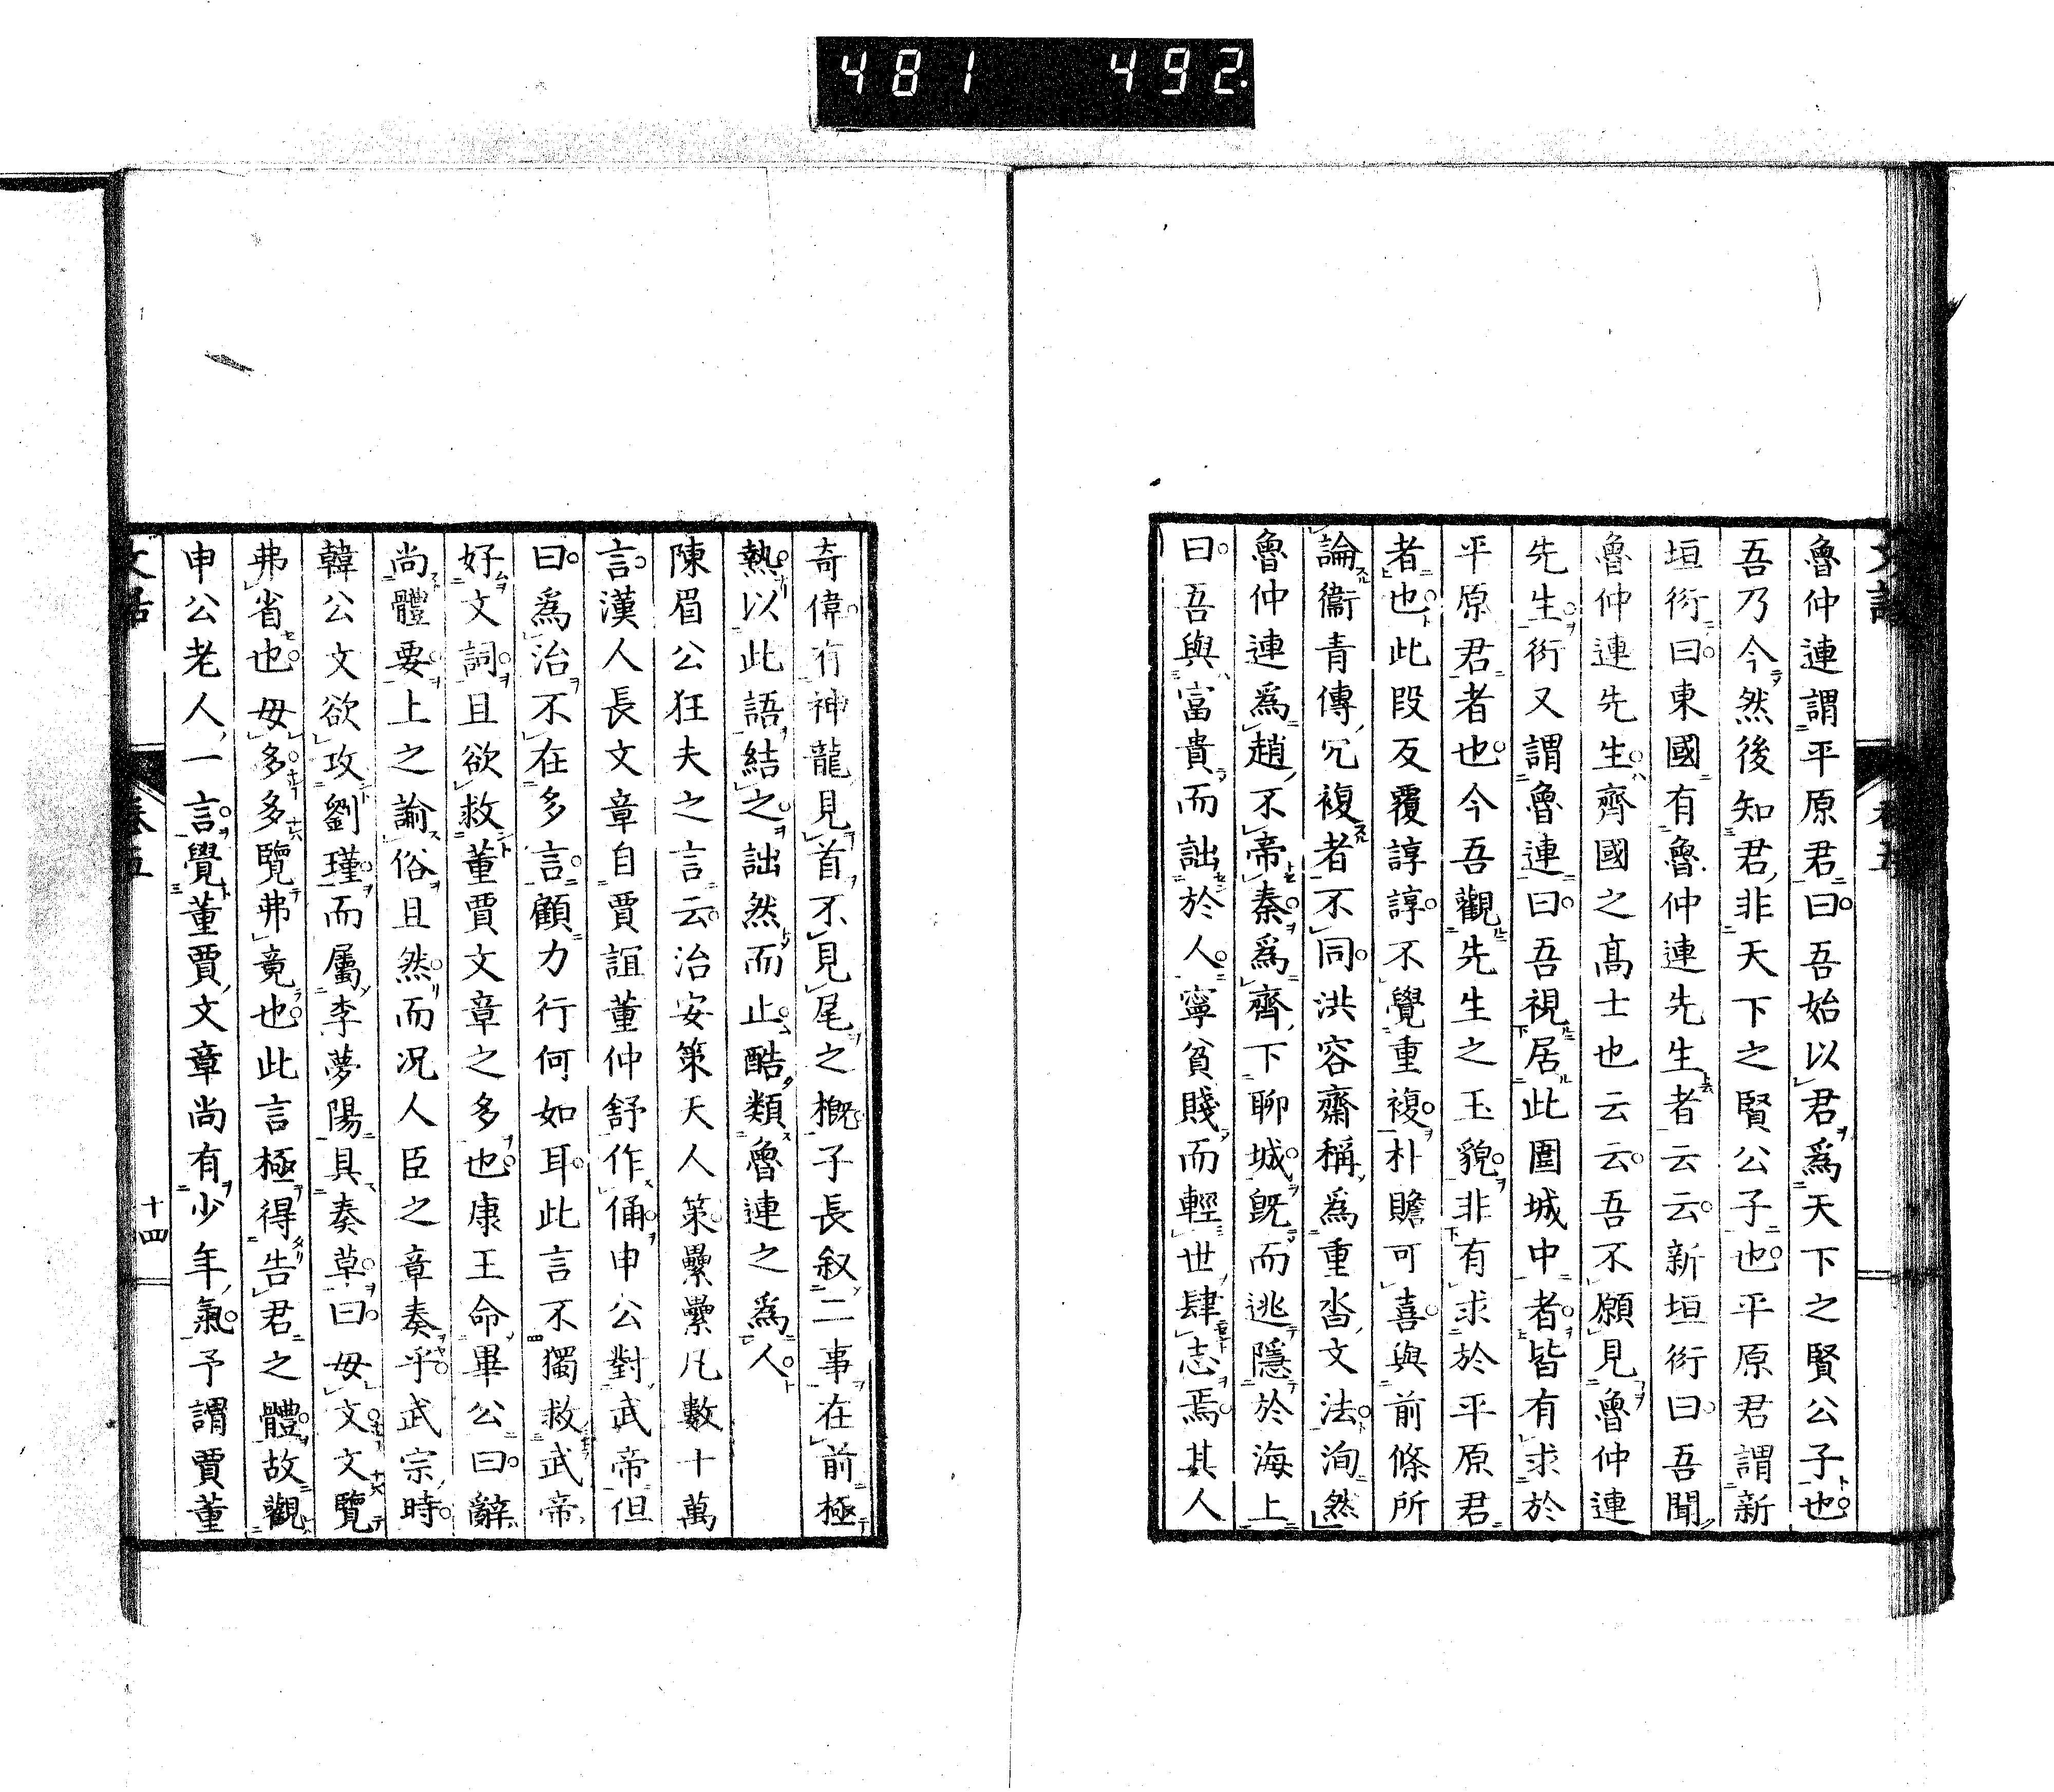 481 492
魯仲連謂平原君曰吾始以君爲天下之賢公子也
吾乃今然後知君非天下之賢公子也平原君謂新
垣衍曰東國有魯仲連先生者云云新垣衍曰吾聞
魯仲連先生齊國之高士也云云吾不願見魯仲連
先生衍又謂魯連曰吾視居此圍城中者皆有求於
平原君者也今吾觀先生之玉貌非有求於平原君
者也此段反覆諄諄不覺重複朴贍可喜與前條所
論衞青傳冗複者不同洪容齋稱爲重沓文法洵然
魯仲連爲趙不帝秦爲齊下聊城既而逃隱於海上
曰吾與富貴而詘於人寧貧賤而輕世肆志焉其人
奇偉有神龍見首不見尾之概子長叙二事在前極
熱以此語結之詘然而止酷類魯連之爲人
陳眉公狂夫之言云治安策天人策纍纍凡數十萬
言漢人長文章自賈誼董仲舒作俑申公對武帝但
曰爲治不在多言顧力行何如耳此言不獨救武帝
好文詞且欲救董賈文章之多也康王命畢公曰辭
尚體要上之諭俗且然而况人臣之章奏乎武宗時
韓公文欲攻劉瑾而屬李夢陽具奏草曰毋文文覽
弗省也毋多多覽弗竟也此言極得告君之體故觀
申公老人一言覺董賈文章尚有少年氣予謂賈董
十四